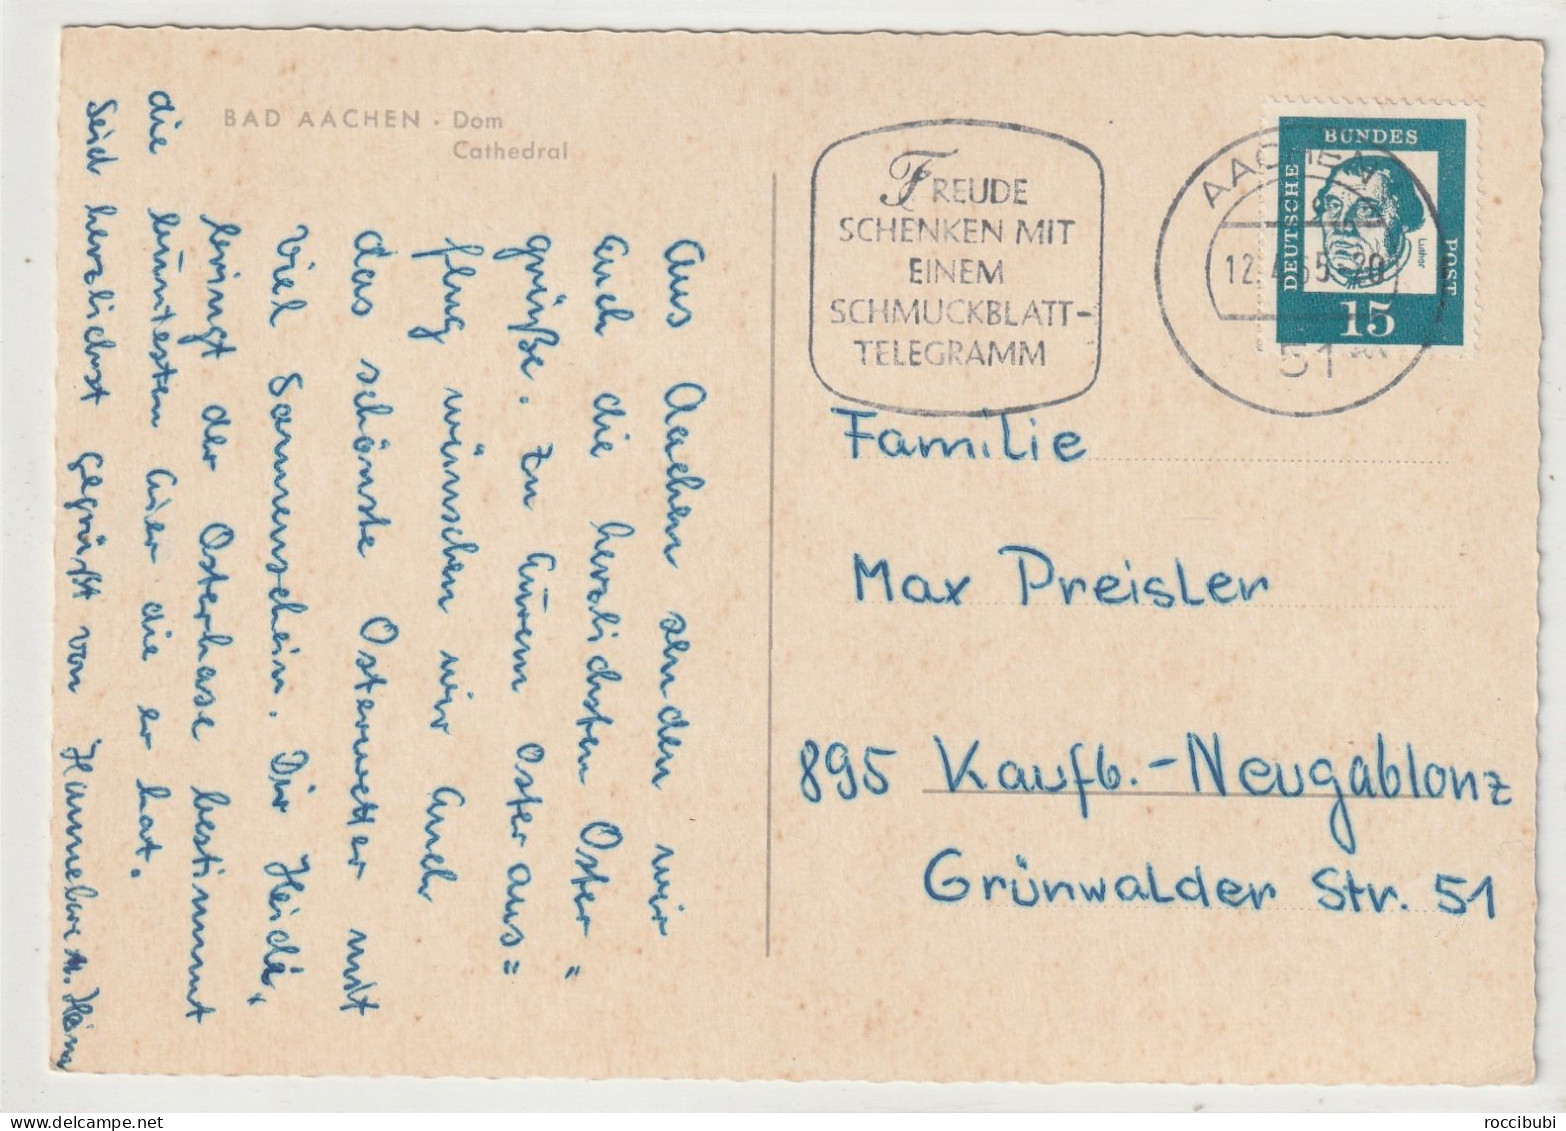 BAD AACHEN · Dom
Cathedral
Aus Aachen senden wir
Euch die herzlichsten Oster"
grüße. Zu Eurem Osteraus=
flug wünschen wir Euch
das schönste Osterwetter mit
viel Sonnenschein. Dir Heidi,
bringt der Osterhase bestimmt
die buntesten Eier die er hat.
Seid herzlichst gegrüßt von Hannelore u.
FREUDE
SCHENKEN MIT
EINEM
SCHMUCKBLATT-
TELEGRAMM
AACHEN
12.4.65-20
51
DEUTSCHE
BUNDES
POST
Luther
15
Familie
Max Preisler
895 Kaufb.-Neugablonz
Grünwalder Str. 51
roccibubi